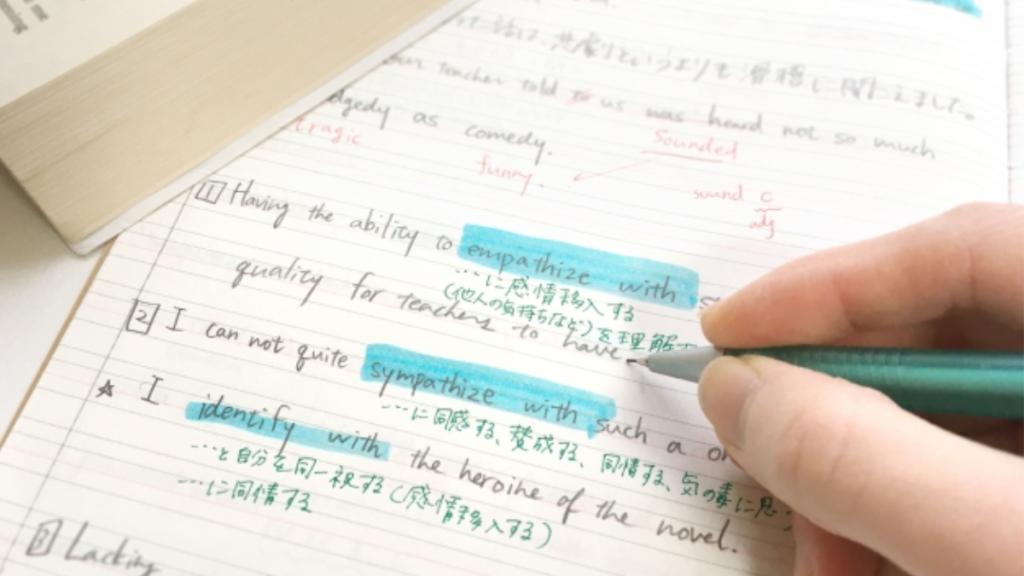 いうよりも滑稽に聞こえました。
teacher told to us was heard not so much
as comedy.
tragic
funny.
sounded
sound C
adj
1 Having the ability to empathize with
…に感情移入する
(他人の気持ちなど)を理解
quality for teachers to have
2 I can not quite sympathize with such a
…に同感する、賛成する、同情する、気の毒に思
☆ I identify with the heroine of the novel.
…と自分を同一視する(感情移入する)
…に同情する
3 Lacking